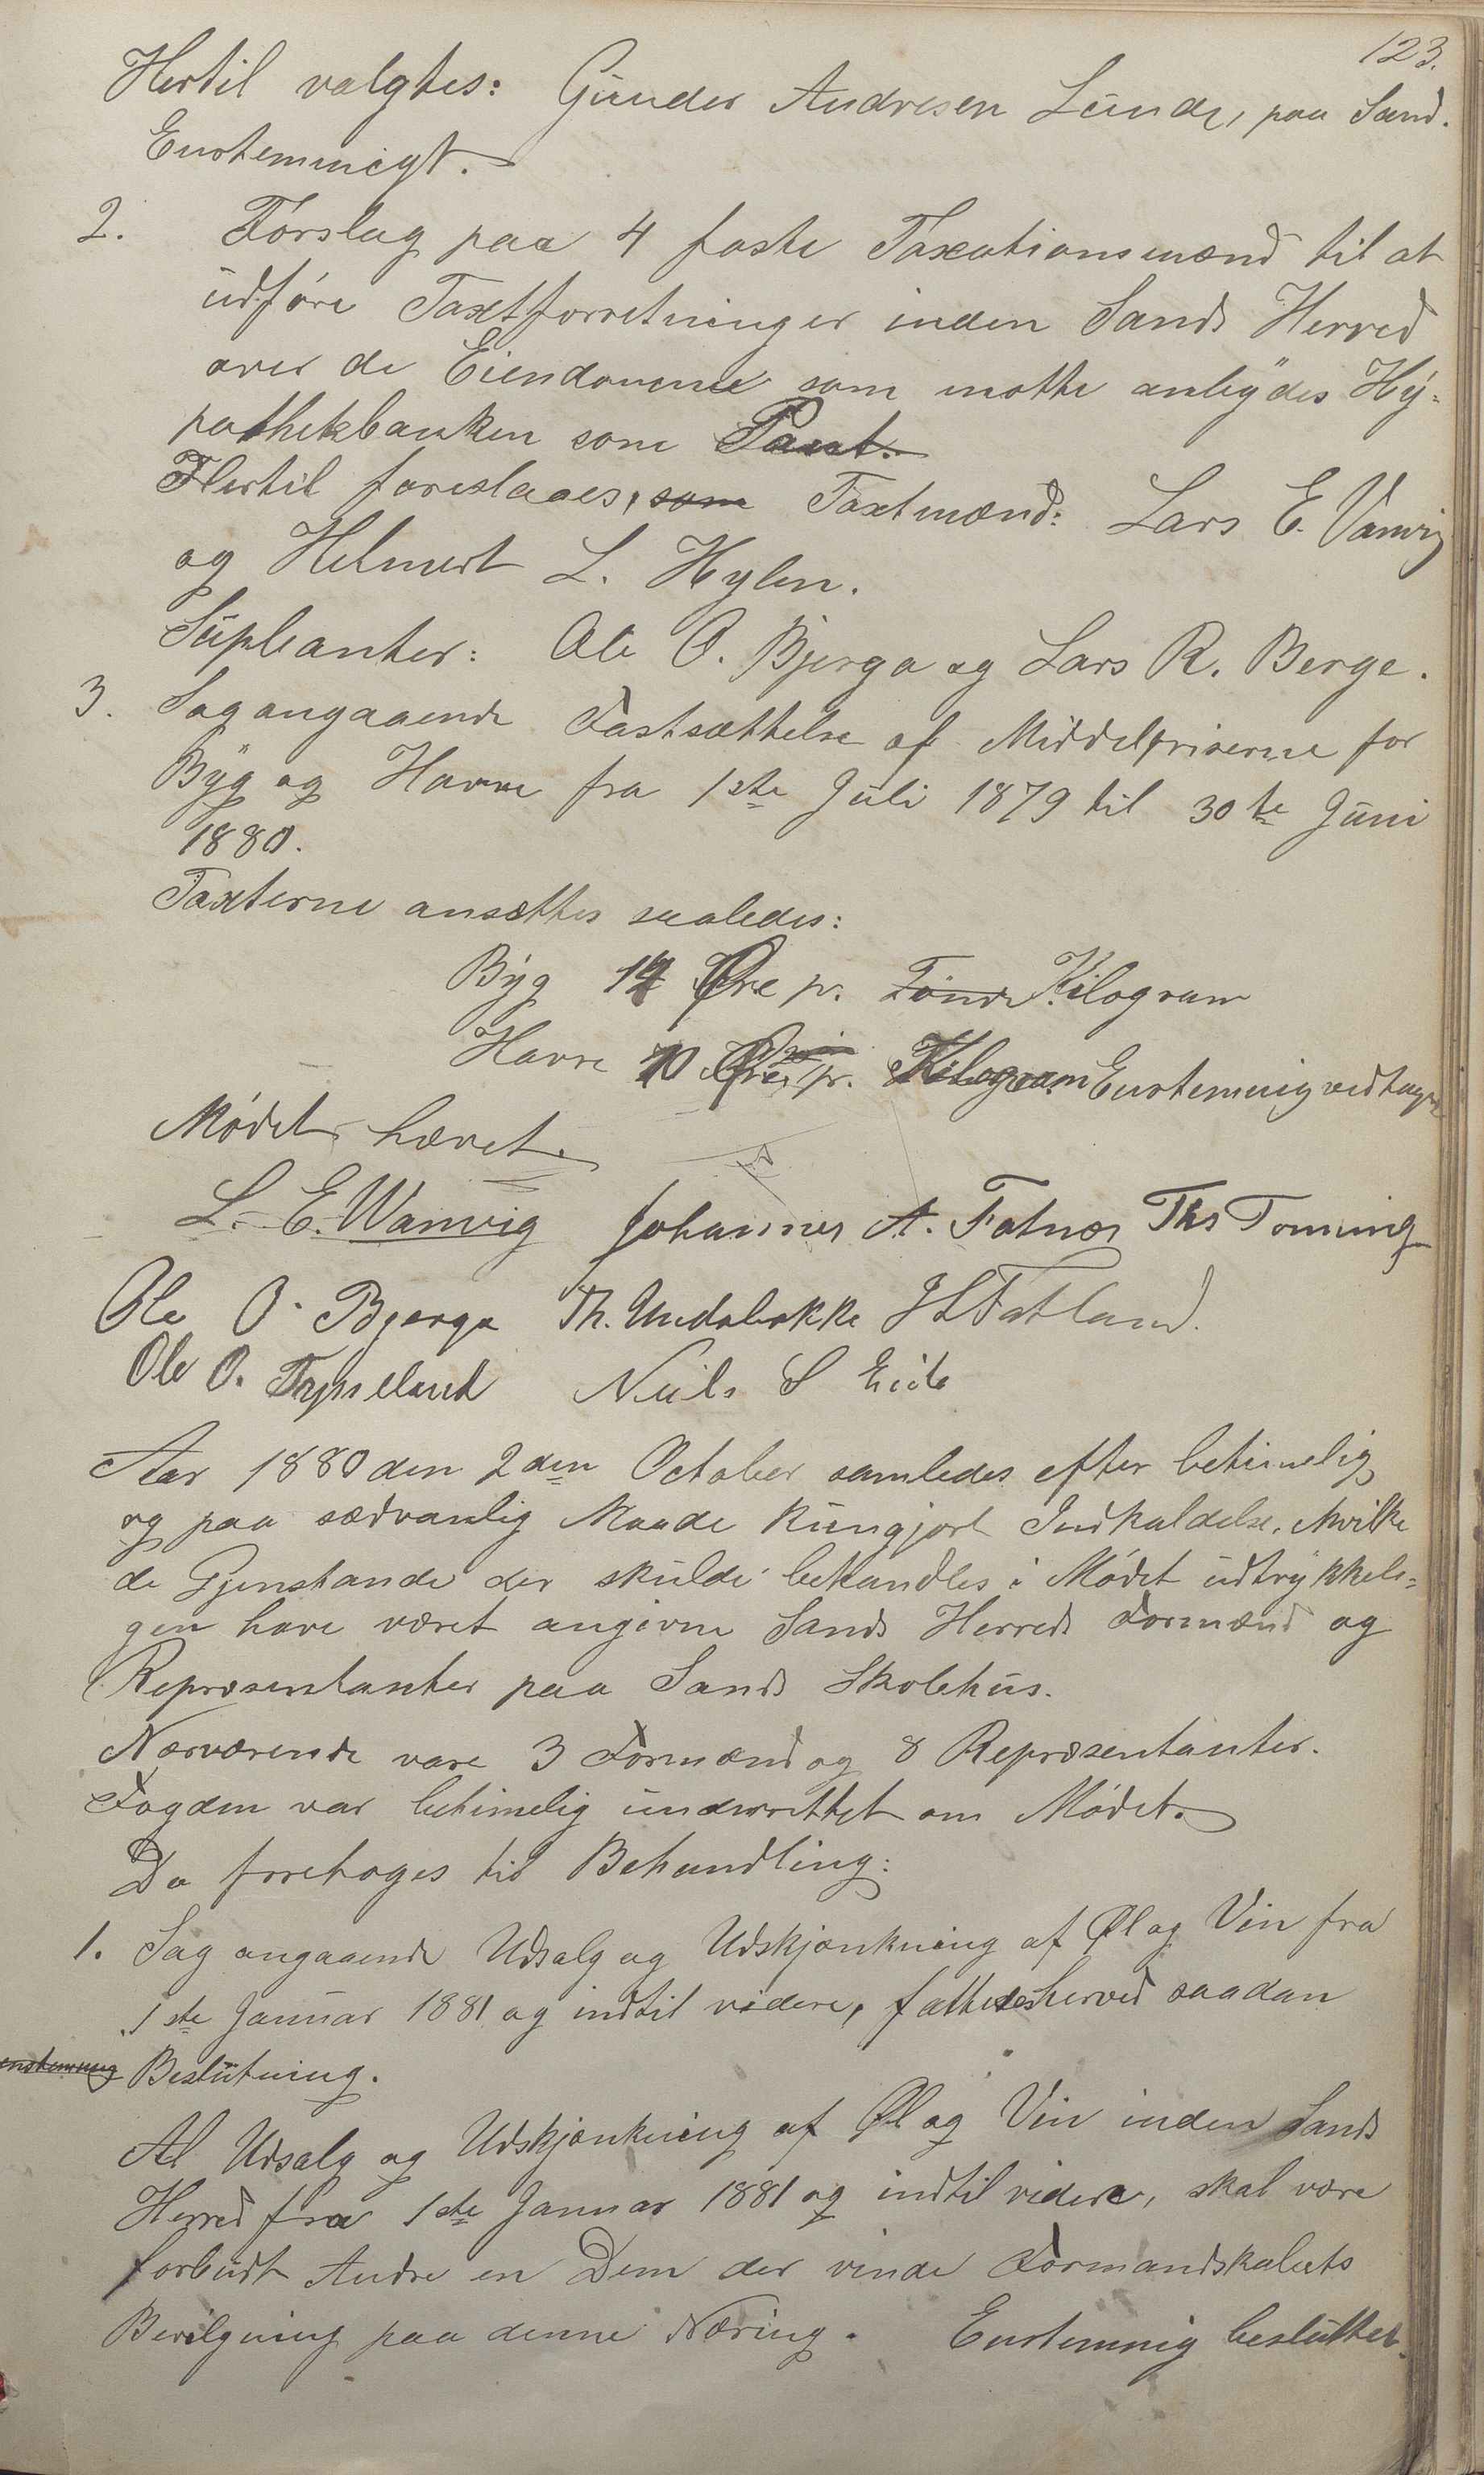 123.
Hertil valgtes: Gunder Andresen Lunde, paa Sand.
Enstemmigt.
2. Forslag paa 4 faste Taxationsmænd til at
udføre Taxtforretninger inden Sands Herred
over de Eiendomme som motte anbydes Hy-
pothekbanken som Pant.
Hertil foreslaaes, som Taxtmænd: Lars E. Vanvig
og Helmert L. Hylen.
Supleanter: Ole O. Bjerga og Lars R. Berge.
3. Sag angaaende Fastsættelse af Middelpriserne for
Byg og Havre fra 1ste Juli 1879 til 30te Juni
1880.
Taxterne ansættes saaledes:
Byg 14 Øre pr. Tønde Kilogram
Havre 10 Øre pr. Kilogram Enstemmig vedtaget
Mødet hævet.
L. E. Wanvig Johannes A. Fatnes Ths Tonning
Ole O. Bjerga Th. Undabakke J L Fatland.
Ole O. Tysseland Niels S Eide
Aar 1880 den 2den October samledes efter betimelig
og paa sædvanlig Maade kungjort Indkaldelse, hvilke
de Gjenstande der skulde behandles i Mødet udtrykkeli-
gen have været angivne Sands Herreds Formænd og
Repræsentanter paa Sands Skolehus.
Nærværende vare 3 Formænd og 8 Repræsentanter.
Fogden var betimelig underrettet om Mødet.
Da foretoges til Behandling:
1. Sag angaaende Udsalg og Udskjænkning af Øl og Vin fra
1ste Januar 1881 og indtil videre, fattedes herved saadan
enstemmig Beslutning.
Al Udsalg og Udskjænkning af Øl og Vin inden Sands
Herred fra 1ste Januar 1881 og indtil videre, skal være
forbudt Andre en Dem der vinde Formandskabets
Bevilgning paa denne Næring. Enstemmig besluttet.